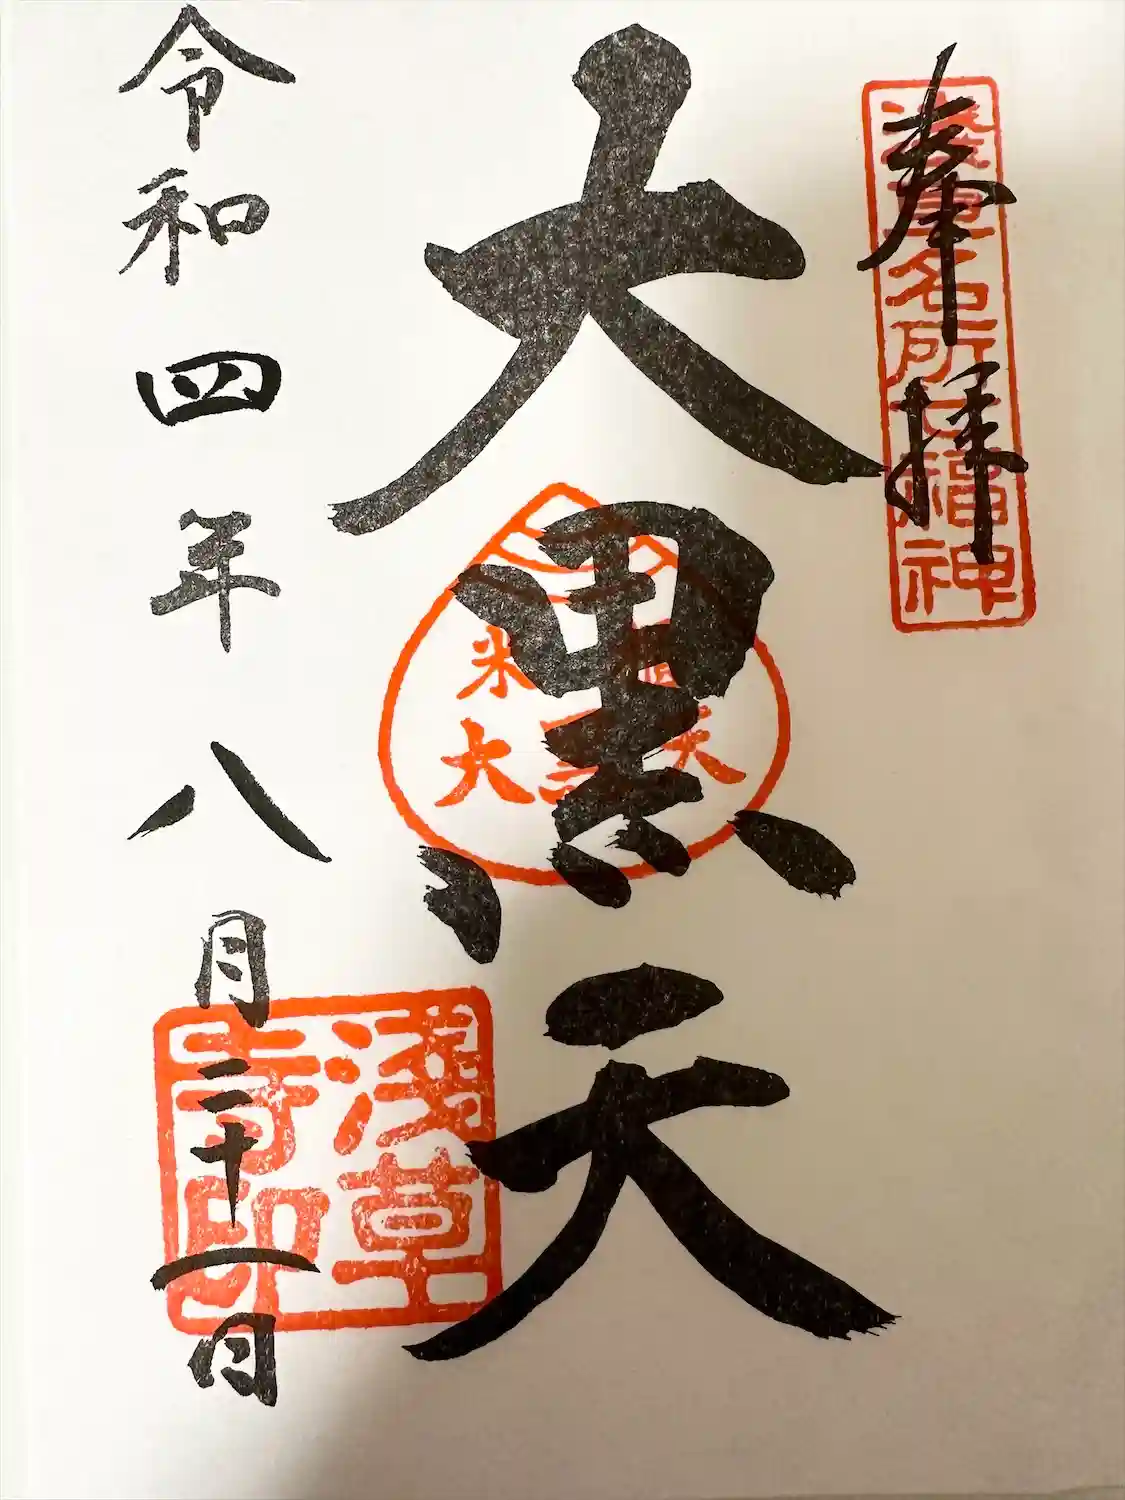 奉拝
浅草名所七福神
大黒天
米
大 天
浅草
寺印
令和四年八月二十一日